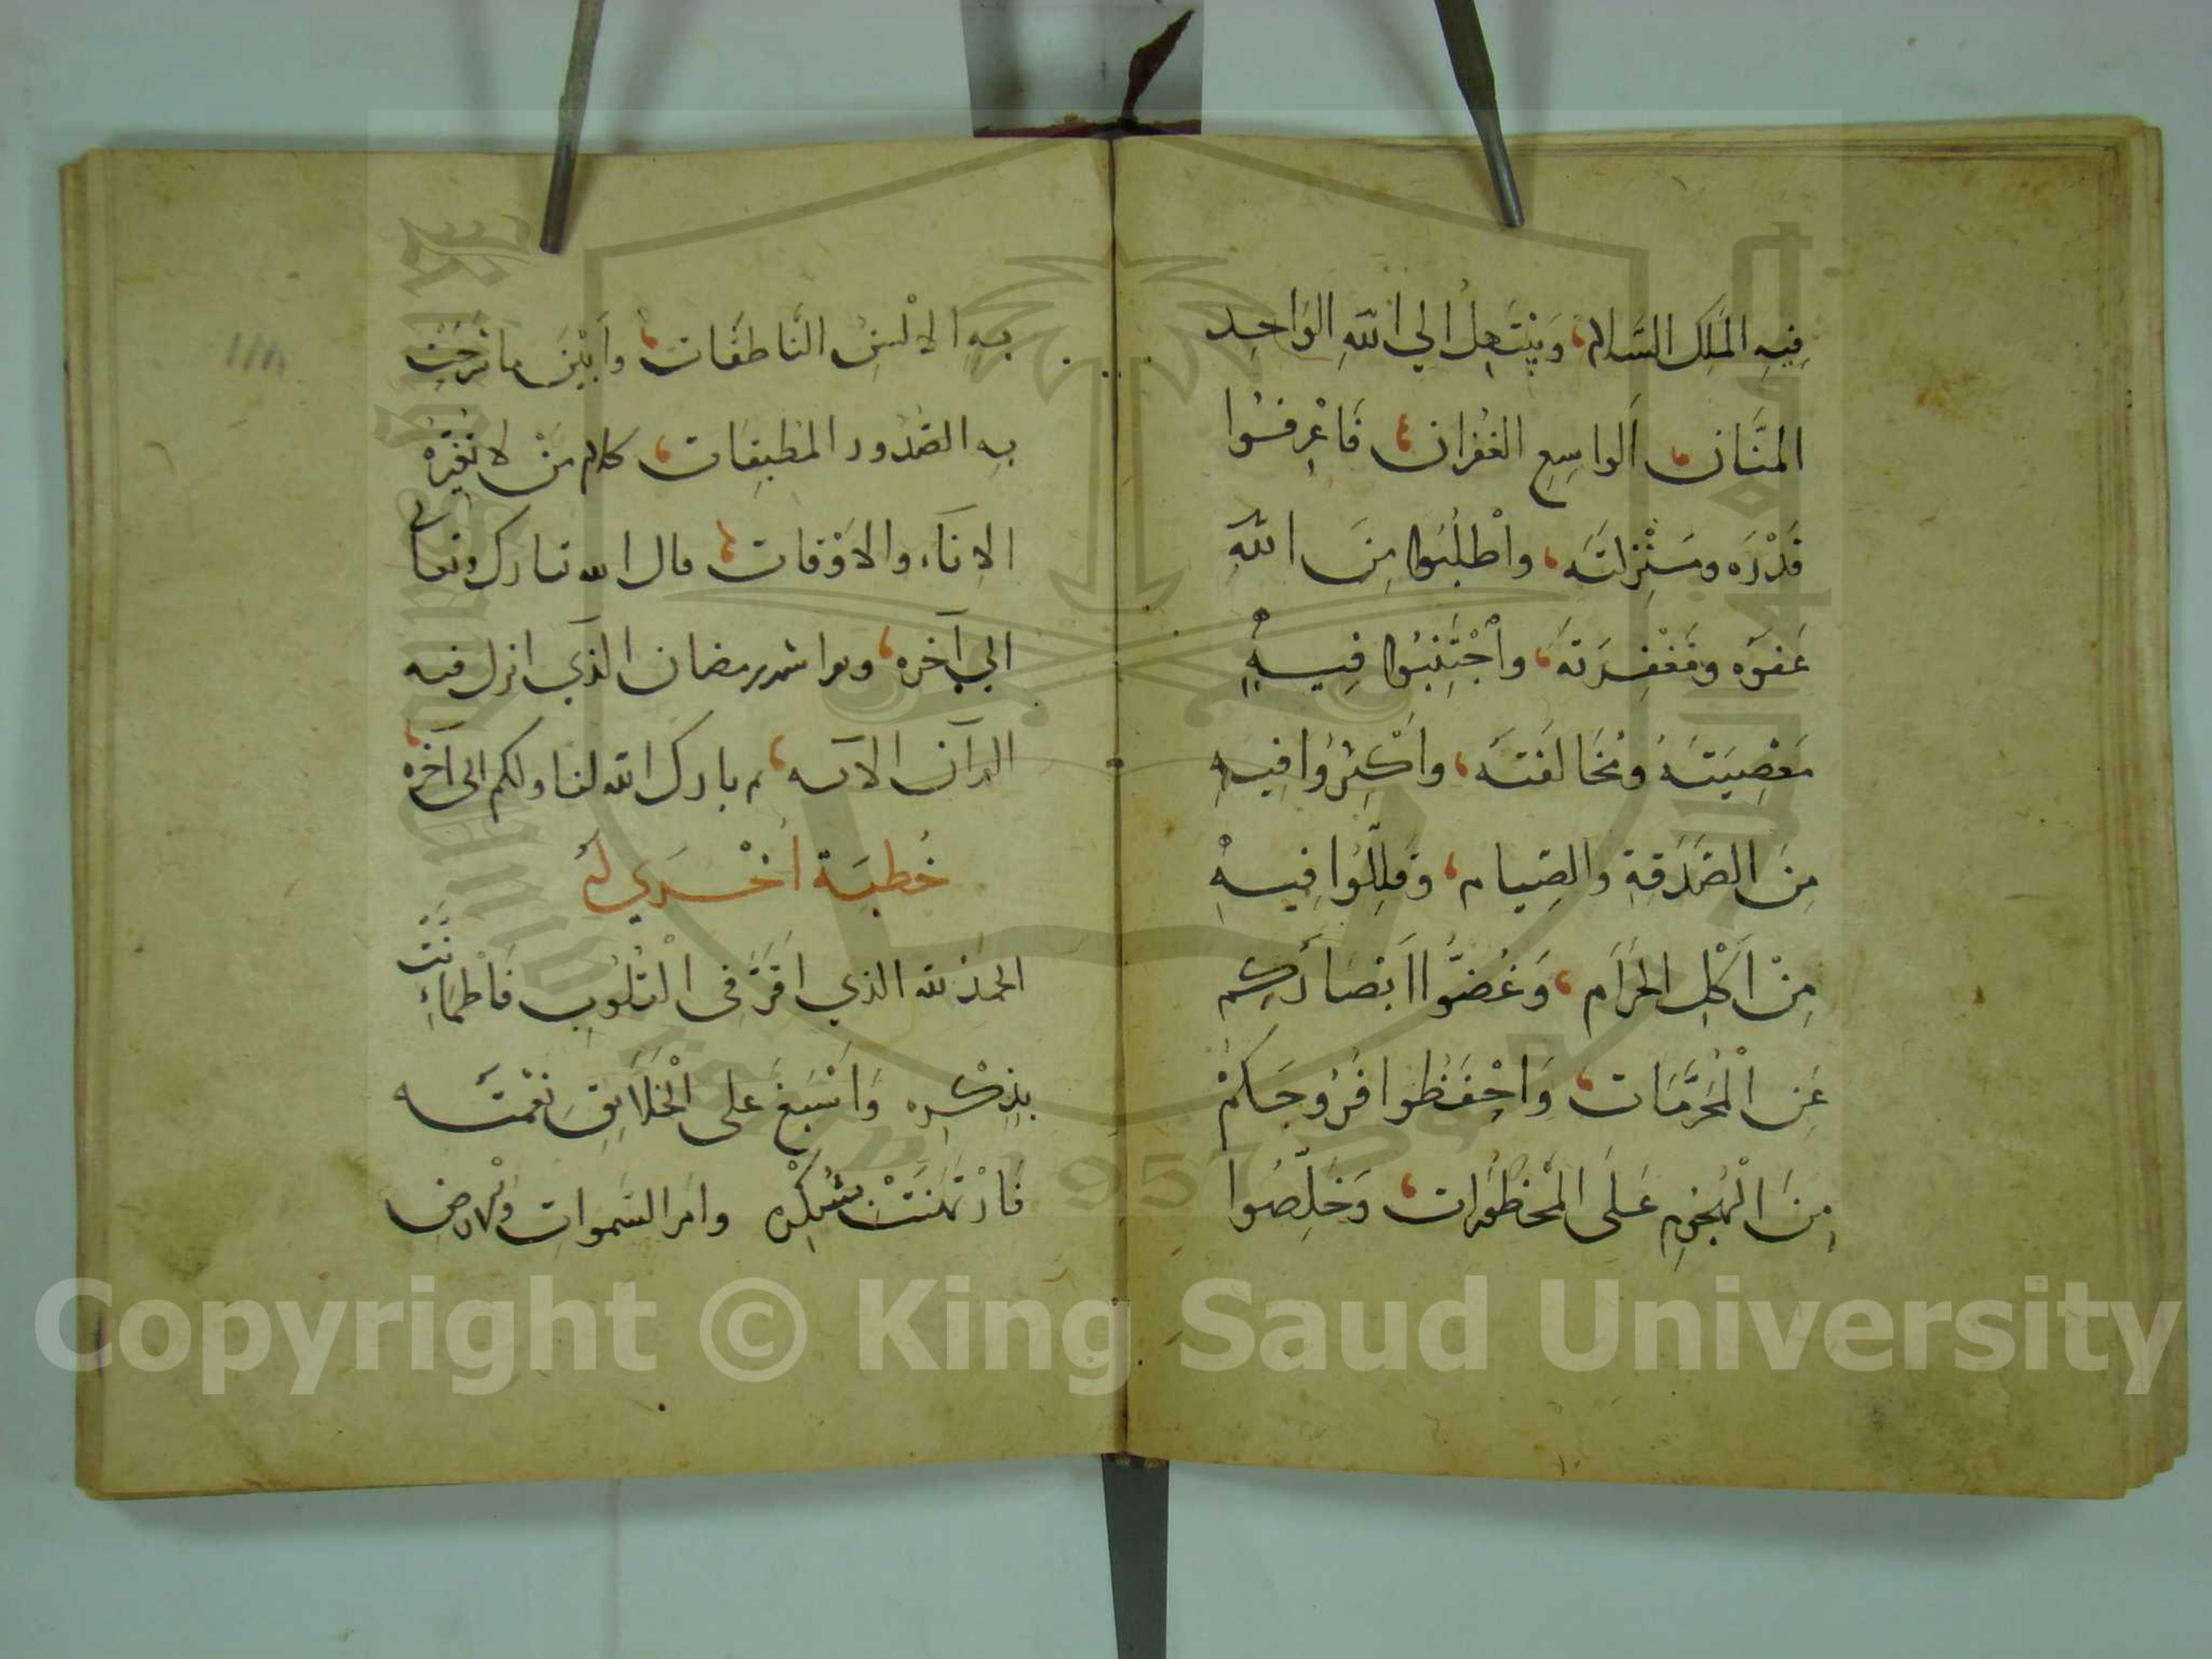 فِيهِ المَلِكِ السَّلام، وَيَبْتَهِلُ الي اللهِ الوَاحِدِ
المنَّان، الوَاسِعِ الغُفْران، فَاعْرِفُوا
قَدْرَه ومَنْزِلتَه، واطْلُبُوا مِنَ اللهِ
عَفوَه ومَغْفِرَتَه، واجْتَنِبُوا فِيهِ
مَعْصِيَتَهُ ومُخَالَفَتَه، واَكْثِرُوا فِيهِ
مِنَ الصَّدَقةِ والصِّيام، وَقَلِّلُوا فِيهِ
مِنْ اَكْلِ الحَرَام، وَغُضُّوا اَبْصَارَكم
عَنِ الْمُحَرَّمَات، وَاحْفَظُوا فُرُوجَكمْ
مِنَ الْهُجُومِ عَلَى المَحْظُورَات، وَخَلِّصُوا
بِهِ الالْسُن النَّاطقَات، وَاَبْيَن ما شرحت
بِهِ الصُّدُور المُطبِقَات، كلام مَنْ لا تُغَيِّرُهُ
الانَاء والاَوْقات، قال الله تبارك وتعالى
الي آخره، وبعد شهر رمضان الذي انزل فيه
القرآن الآيه، بارك الله لنا ولكم الى آخره
خُطبَة اُخْرَي لَهُ
الحمدُ لله الذي اقَرَّ فِي الْقُلُوبِ فَاطْمَأَنَّتْ
بِذِكْرِه وَاَسْبَغَ على الْخَلَايِقِ نِعْمَتَه
فَارْتَهَنَتْ بشُكْرِه وامر السَّمواتِ والارض
Copyright © King Saud University
1957